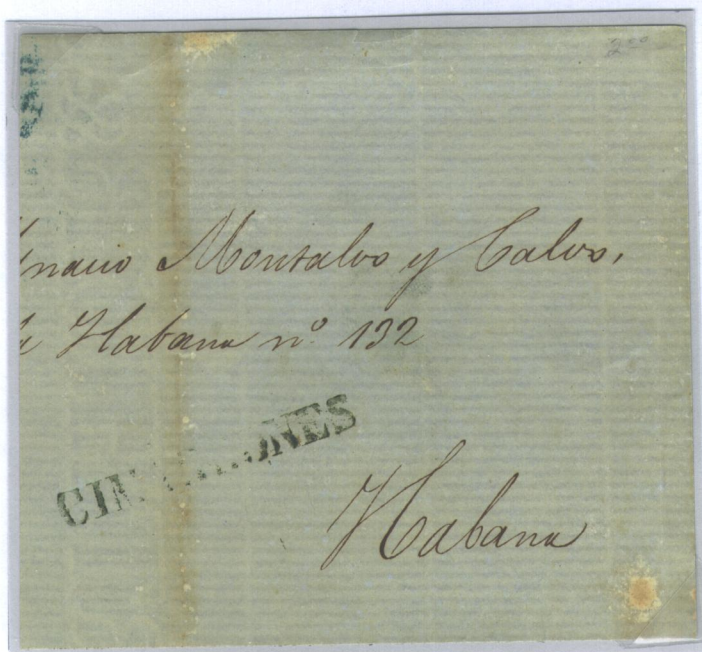 200
gnacio Montalvo y Calvo.
Habana nº 132
CIM RONES
Habana